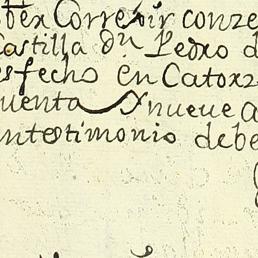 Correxir conze
Castilla dn Pedro d
esfecho en Catorz
uenta y nueve a
ntestimonio debe